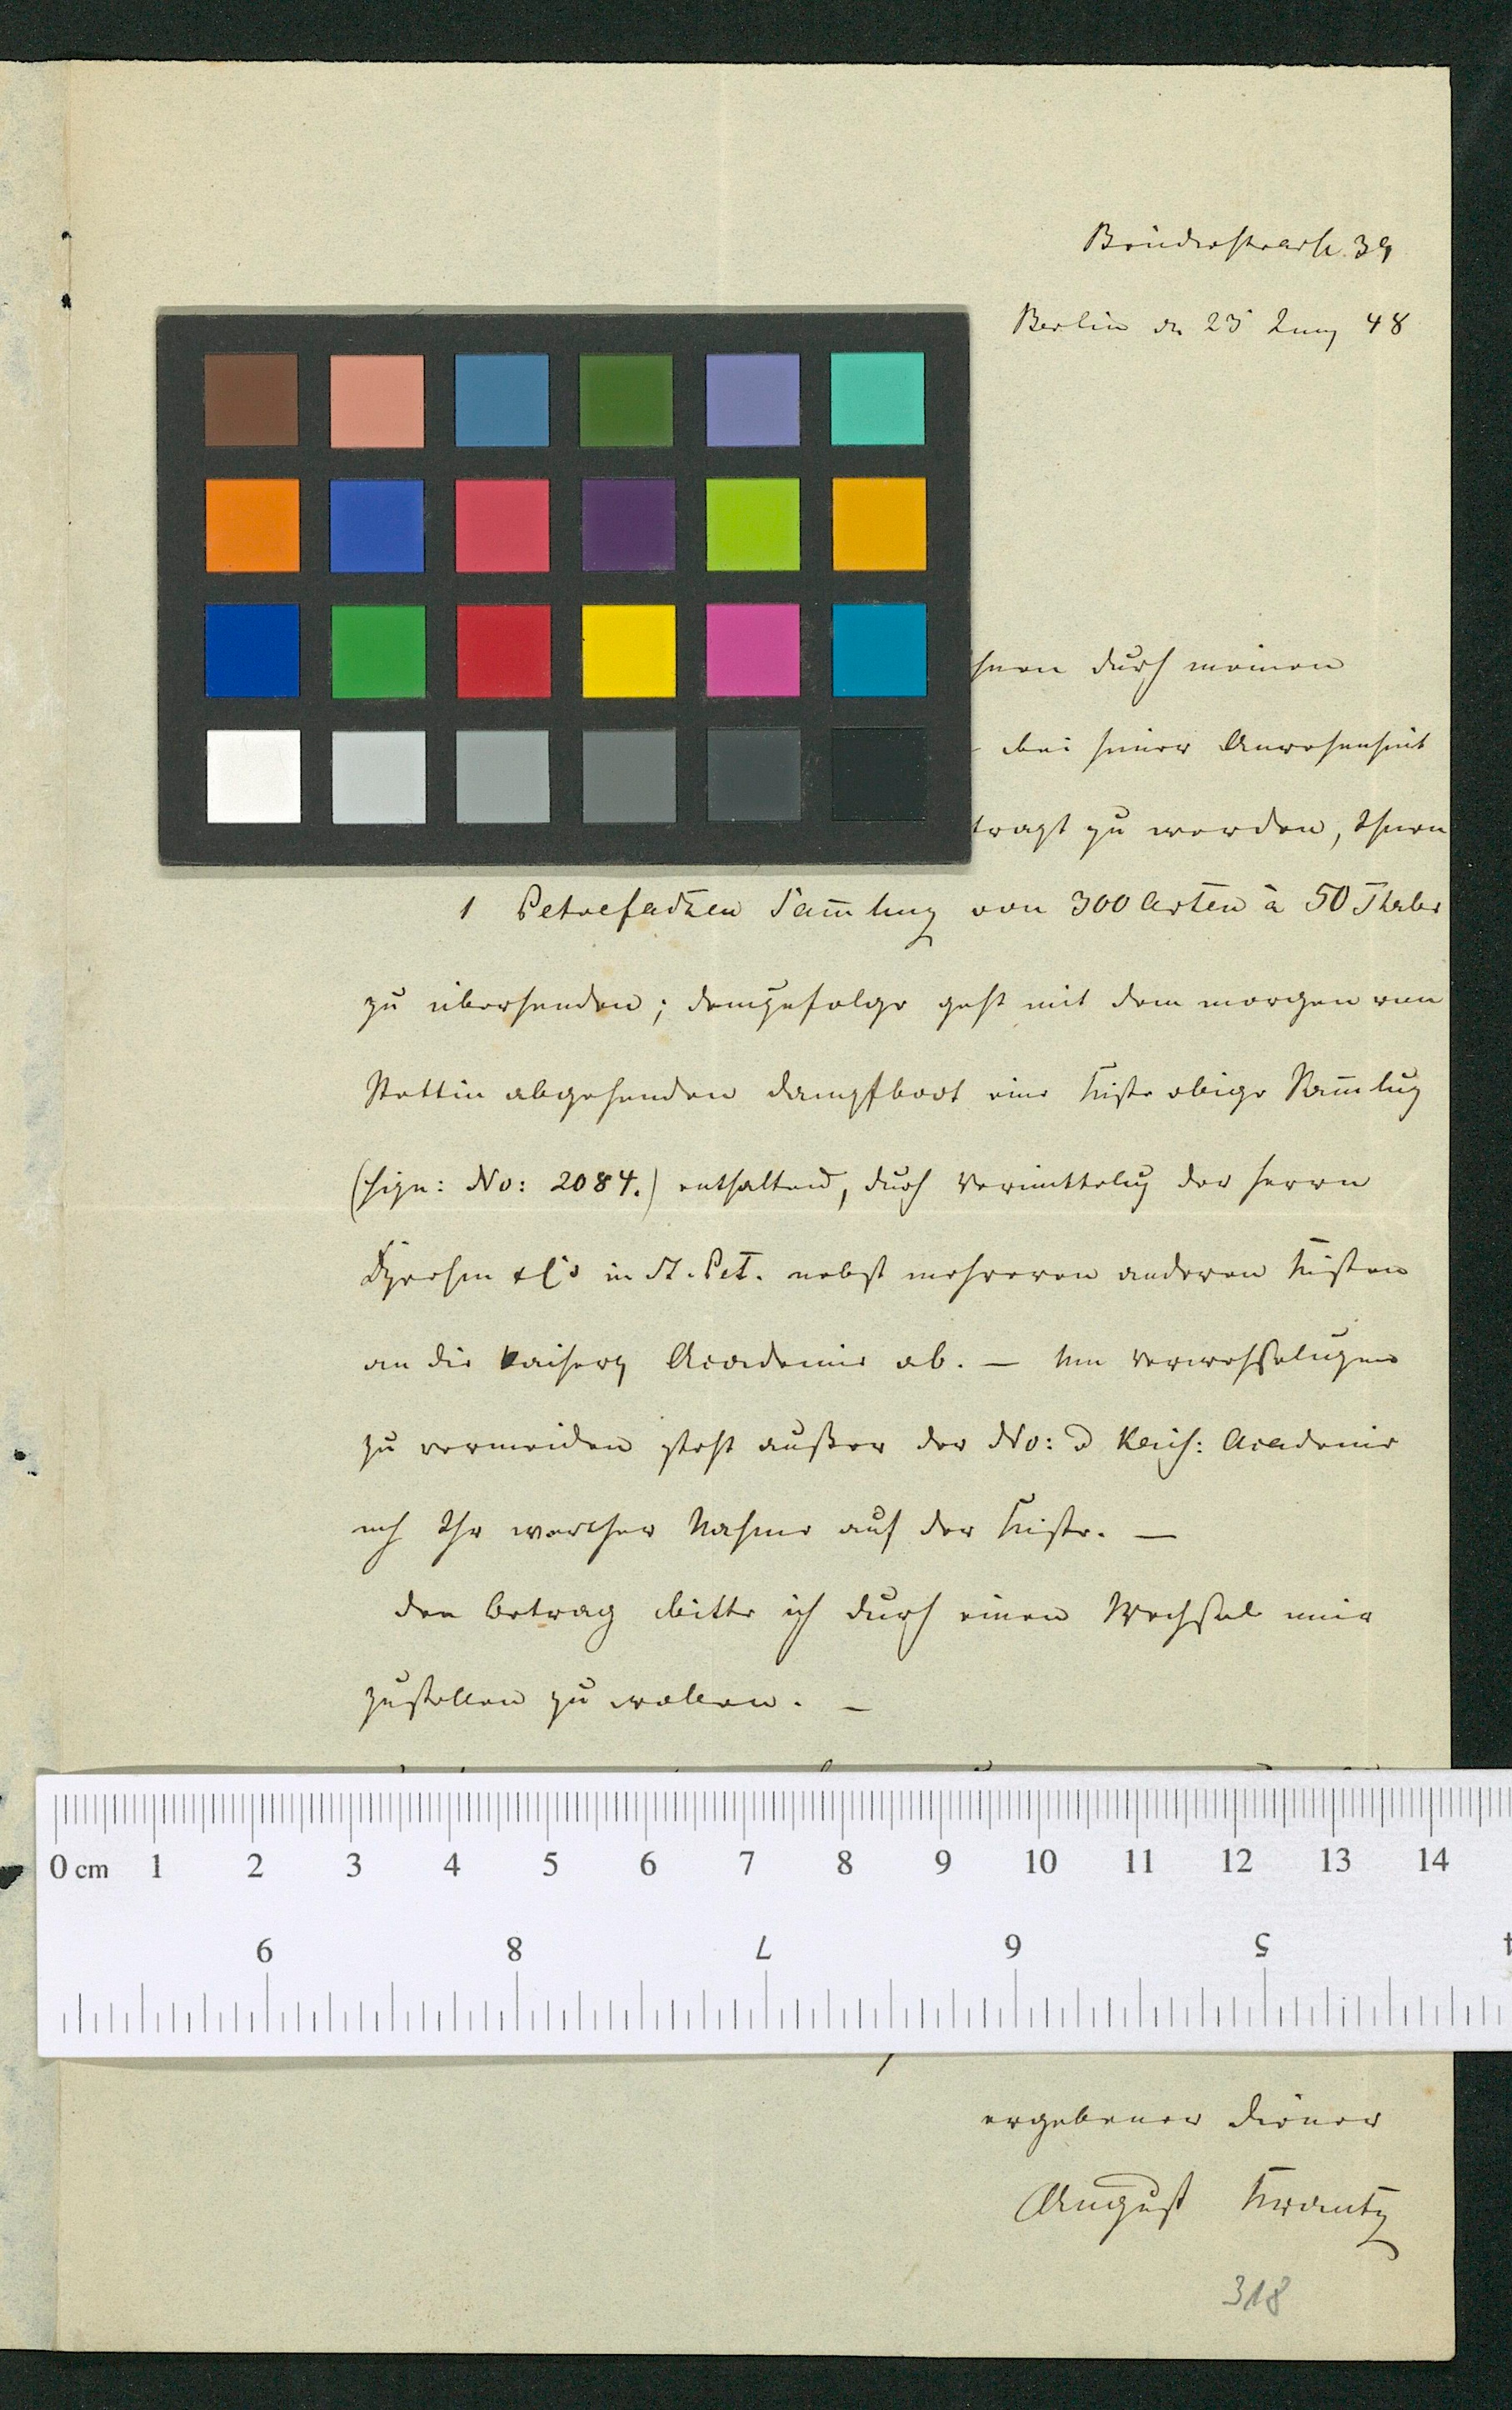 Brüderstrasse 39
Berlin dn 25 Juny 48
hnen durch meinen
bei seiner Anwesenheit
tragt zu werden, Ihnen
1 Petrefacten Sam̅lung von 300 Arten à 50 Thaler
zu übersenden; demzufolge geht mit dem morgen von
Stettin abgehenden Dampfboot eine Kiste obige Sam̅lug
(sign: No: 2084.) enthaltend, durch Vermittelug der Herrn
& Co in St. Pet. nebst mehreren anderen Kisten
an die Academie ab. — Um Verwechselugen
zu vermeiden steht außer der No: d Kais: Academie
nch Ihr werther Nahme auf der Kiste. —
Den Betrag bitte ich durch einen Wechsel mir
zustellen zu wollen. —
0 cm 1 2 3 4 5 6 7 8 9 10 11 12 13 14
9 8 7 6 5 4
ergebener Diener
August Krantz
318